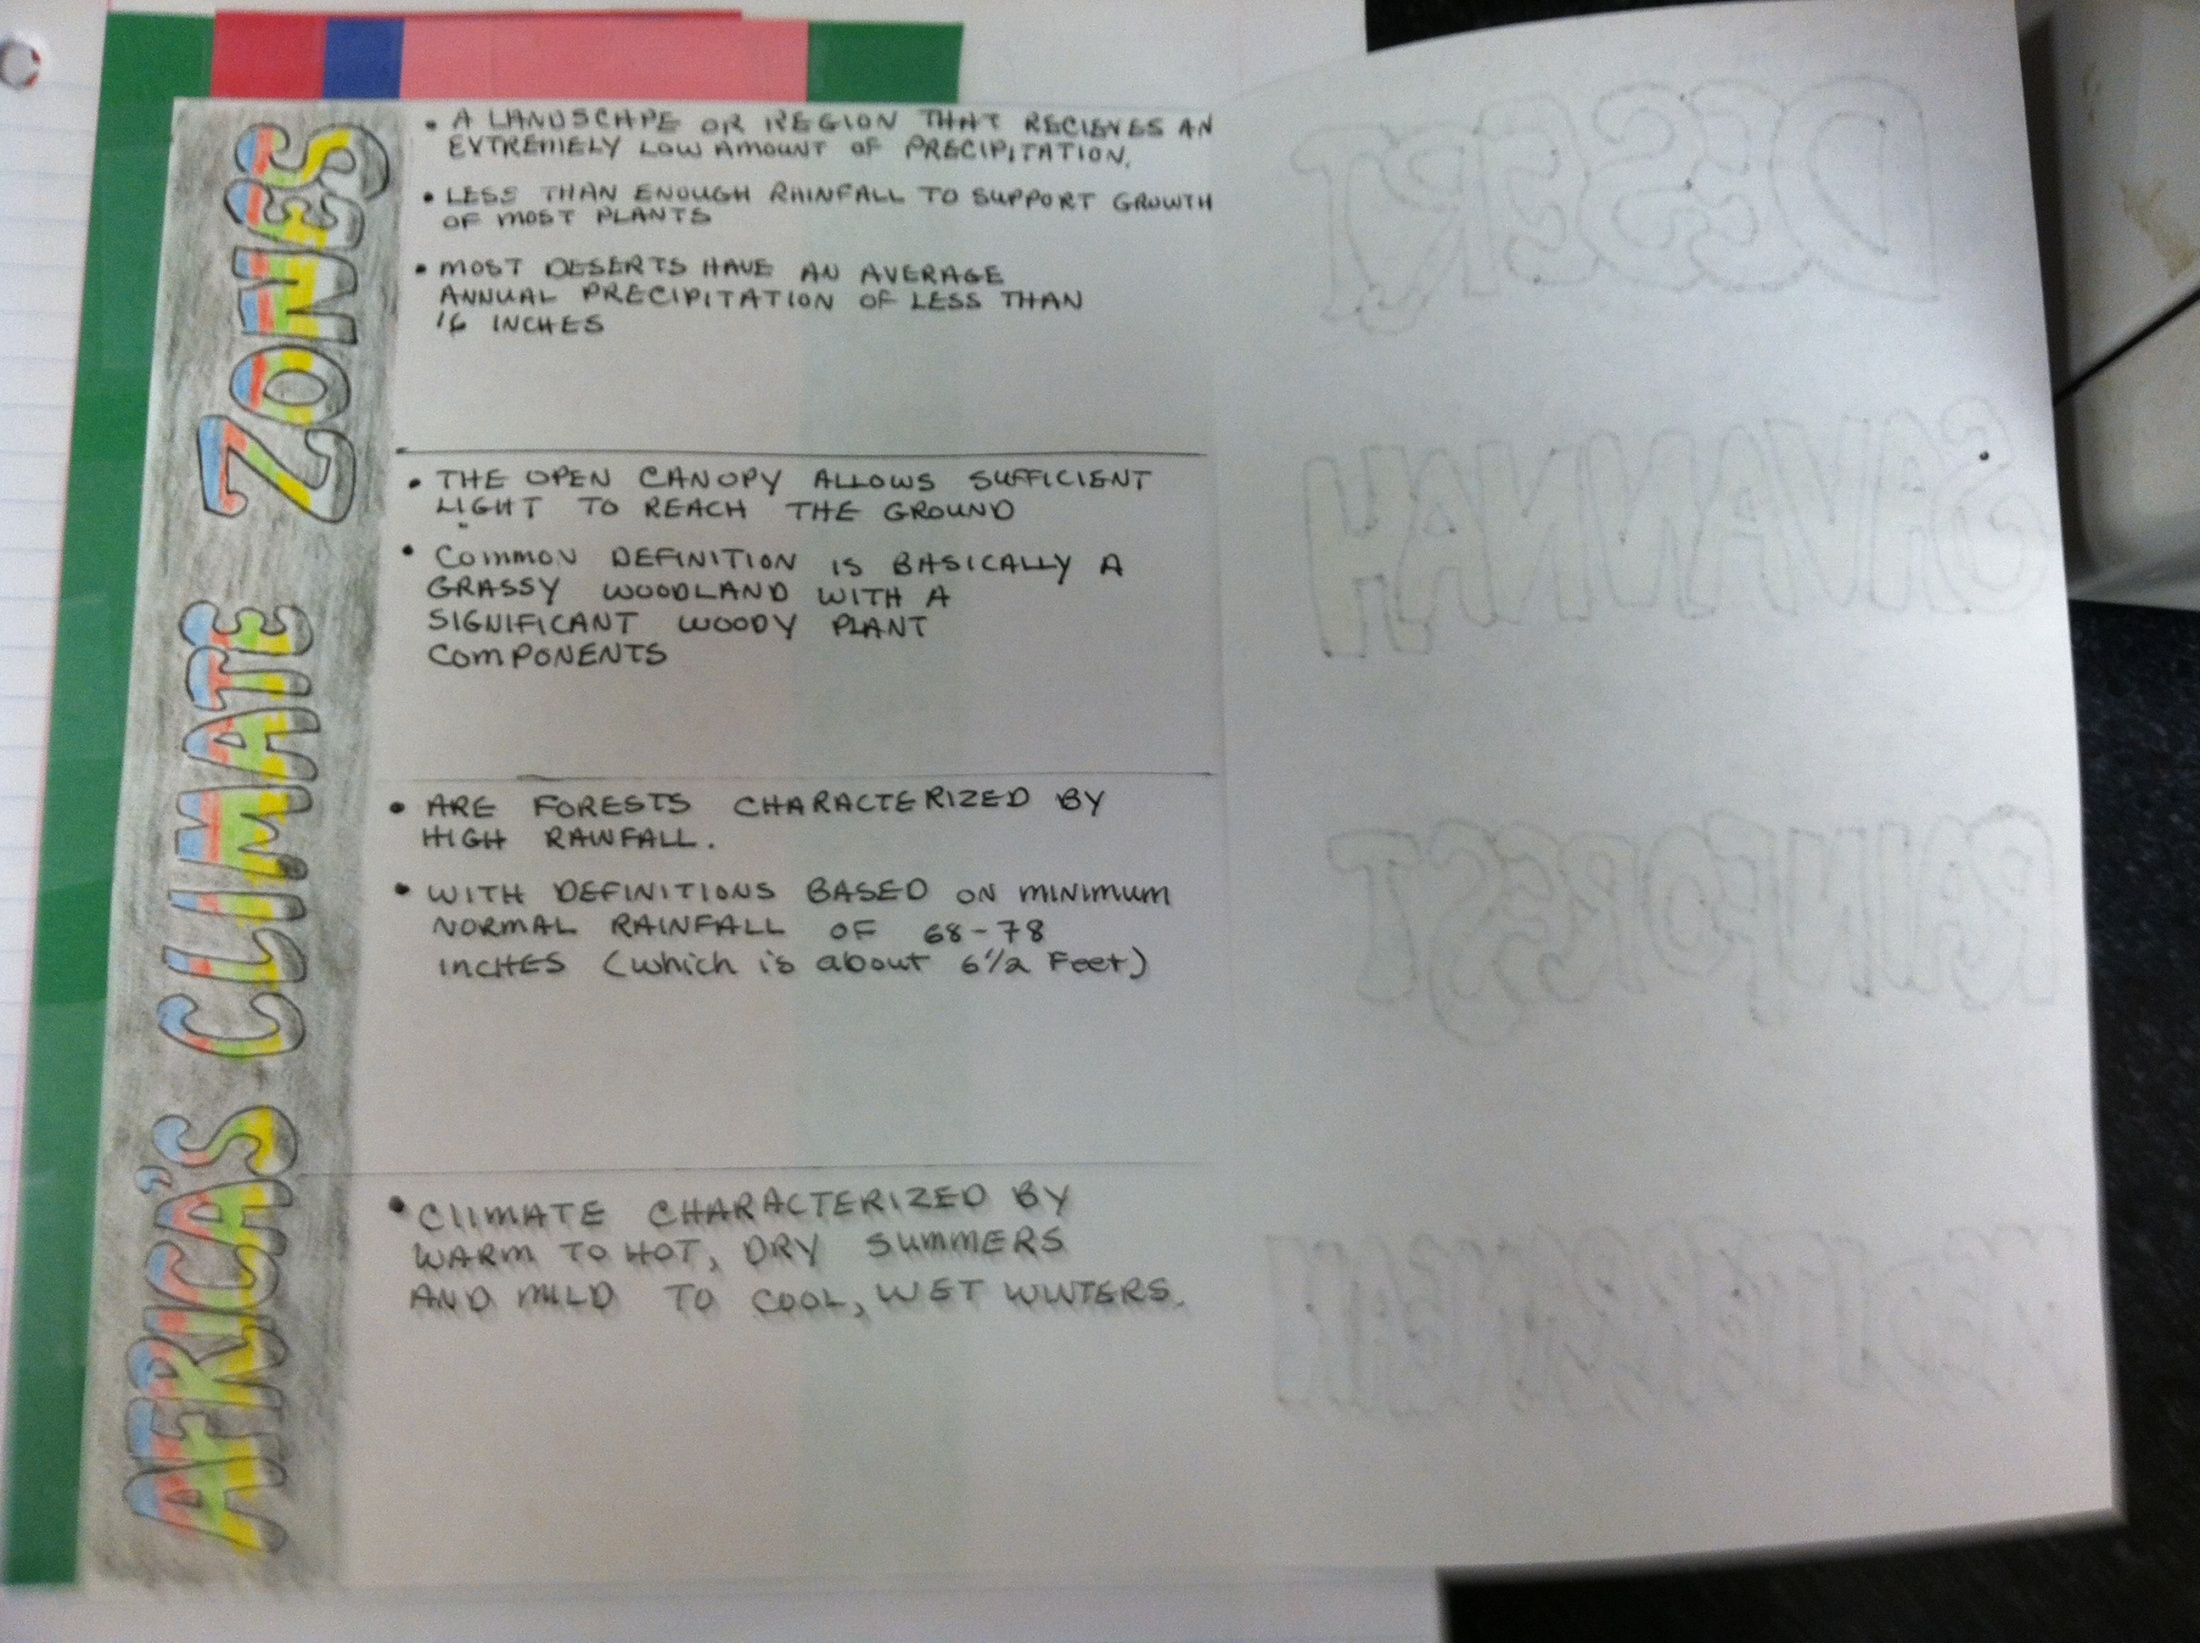 AFRICA'S CLIMATE ZONES
• A LANDSCAPE OR REGION THAT RECIEVES AN
EXTREMELY LOW AMOUNT OF PRECIPITATION.
• LESS THAN ENOUGH RAINFALL TO SUPPORT GROWTH
OF MOST PLANTS
• MOST DESERTS HAVE AN AVERAGE
ANNUAL PRECIPITATION OF LESS THAN
16 INCHES
DESERT
• THE OPEN CANOPY ALLOWS SUFFICIENT
LIGHT TO REACH THE GROUND
• COMMON DEFINITION IS BASICALLY A
GRASSY WOODLAND WITH A
SIGNIFICANT WOODY PLANT
COMPONENTS
SAVANNAH
• ARE FORESTS CHARACTERIZED BY
HIGH RAINFALL.
• WITH DEFINITIONS BASED ON MINIMUM
NORMAL RAINFALL OF 68-78
INCHES (which is about 6 1/2 Feet)
RAINFOREST
• CLIMATE CHARACTERIZED BY
WARM TO HOT, DRY SUMMERS
AND MILD TO COOL, WET WINTERS.